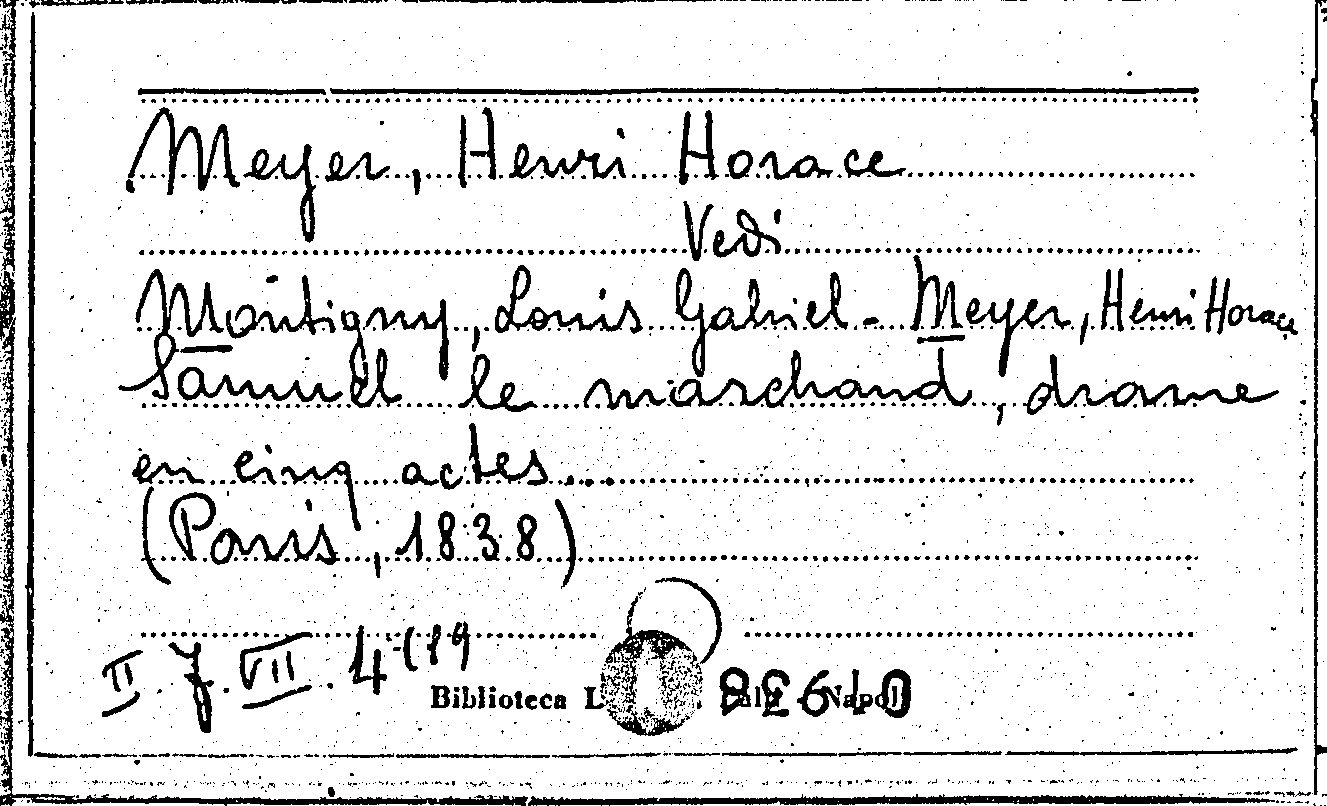 Meyer, Henri Horace
Vedi
Montigny, Louis Gabriel - Meyer, Henri Horace
Samuel le marchand, drame
en cinq actes...
(Paris, 1838)
II. J. VII. 4 (19
Biblioteca L Napoli